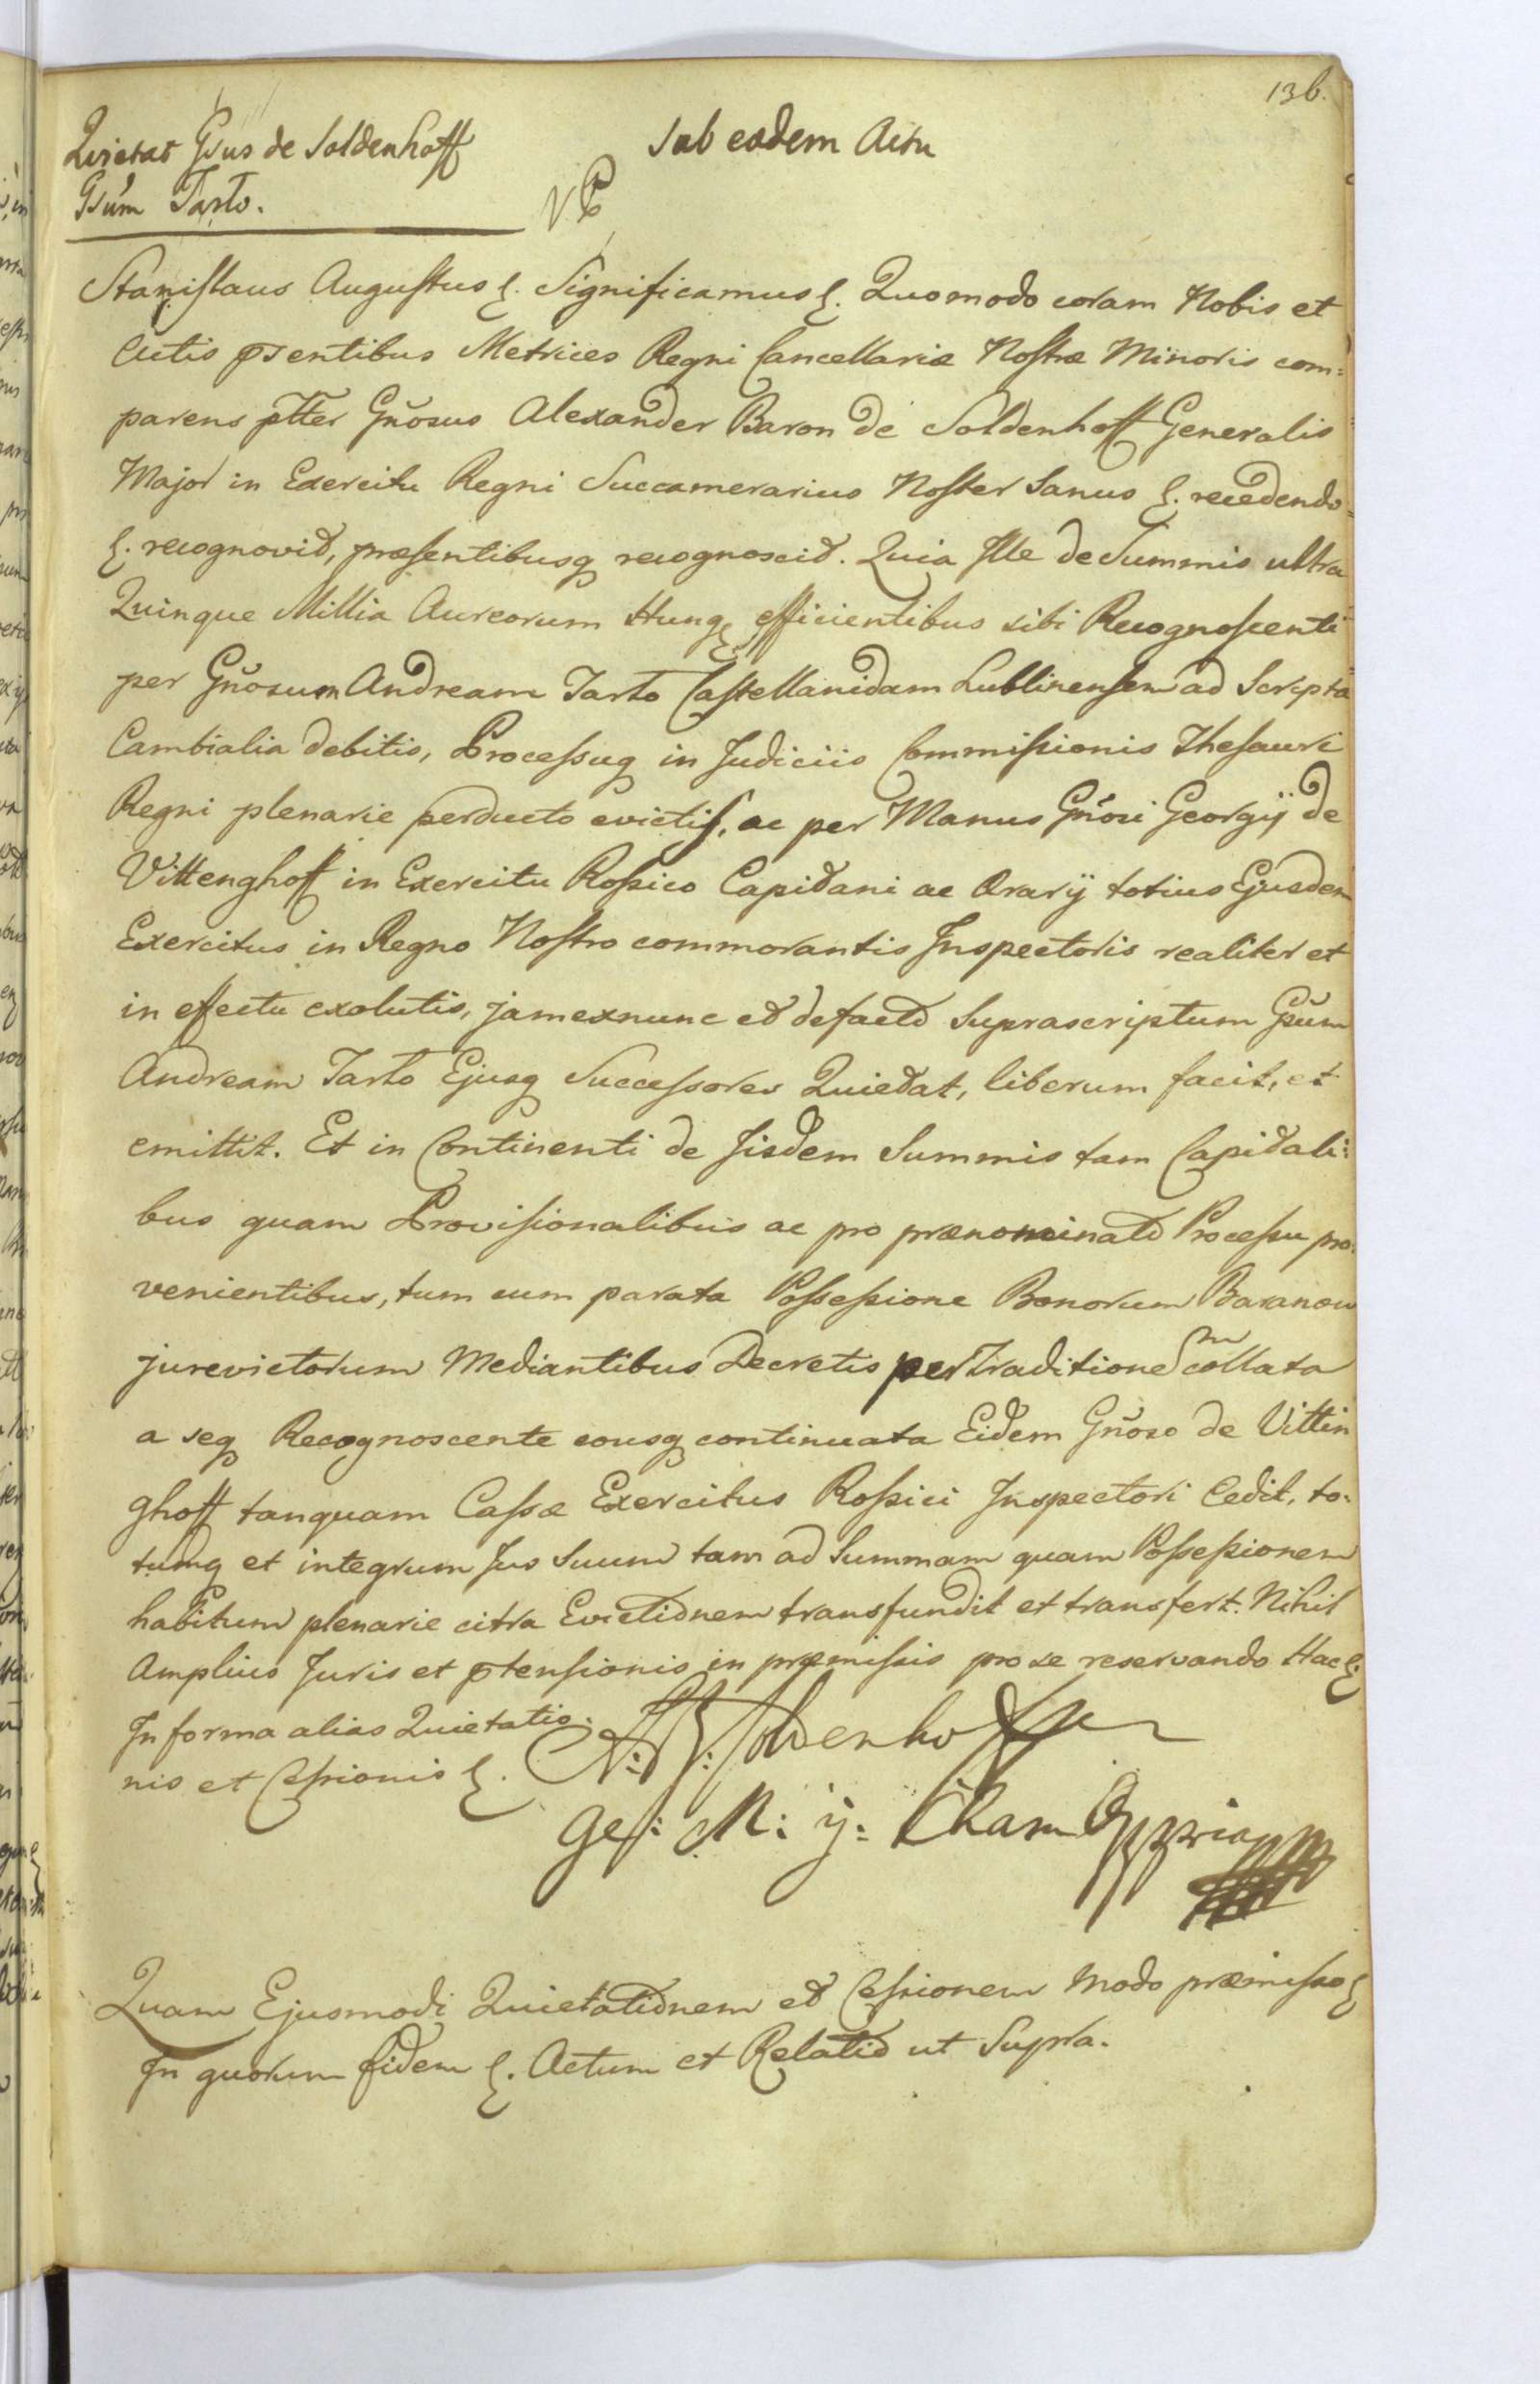 136.
Quietat Gsus de Soldenhoff
Gsum Tarło.
Sub eodem Actu
Stanislaus Augustus &. Significamus &. Quomodo coram Nobis et
Actis psentibus Metrices Regni Cancellariæ Nostræ Minoris com=
parens ptter Gnosus Alexander Baron de Soldenhoff Generalis
Major in Exercitu Regni Succamerarius Noster Sanus &. recedendo
&. recognovit, præsentibusq recognoscit. Quia Ille de Summis ultra
Quinque Millia Aureorum Hung& efficientibus sibi Recognoscenti
per Gnosum Andream Tarło Castellanidam Lublinensem ad Scripta
Cambialia debitis, Processuq in Judiciis Commissionis Thesauri
Regni plenarie perducto evictis, ac per Manus Gnosi Georgij de
Vittenghoff in Exercitu Rossico Capitani ac Ærarij totius Ejusdem
Exercitus in Regno Nostro commorantis Inspectoris realiter et
in effectu exolutis, jam exnunc et defacto Suprascriptum Gsum
Andream Tarło Ejusq Successores Quietat, liberum facit, et
emittit. Et in Continenti de Iisdem Summis tam Capitali=
bus quam Provisionalibus ac pro prænominato Processu pro=
venientibus, tum cum parata Possessione Bonorum Baranow
jurevictorum Mediantibus Decretis per Traditionem collata
a seq Recognoscente eousq continuata Eidem Gnoso de Vittin
ghoff tanquam Cassæ Exercitus Rossici Inspectori Cedit, to=
tumq et integrum Jus Suum tam ad Summam quam Possessionem
habitum plenarie citra Evictionem transfundit et transfert. Nihil
Amplius Juris et ptensionis in præmissis pro se reservando Hac &
In forma alias Quietatio=
nis et Cessionis &.
A: B: Soldenhoff
Ge: M: y: Cham
Quam Ejusmodi Quietationem et Cessionem Modo præmisso &
In quorum fidem &. Actum et Relatio ut Supra.